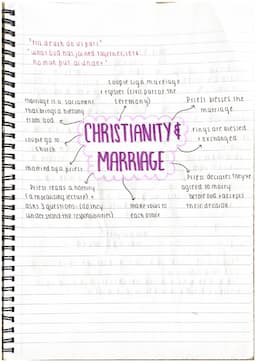 "till death do us part"
"what God has joined together, let
no man put asunder"
couple sign marriage
register (civil part of the
ceremony)
marriage is a sacrament
that brings a blessing
from God
Priest blesses the
marriage
rings are blessed
exchanged
CHRISTIANITY &
MARRIAGE
couple go to
church
married by a priest
Priest reads a homily
(a moralising lecture) +
asks 3 questions (do they
understand the responsibilities)
make vows to
each other
Priest declares they're
agreed to marry
before God + accepts
their decision